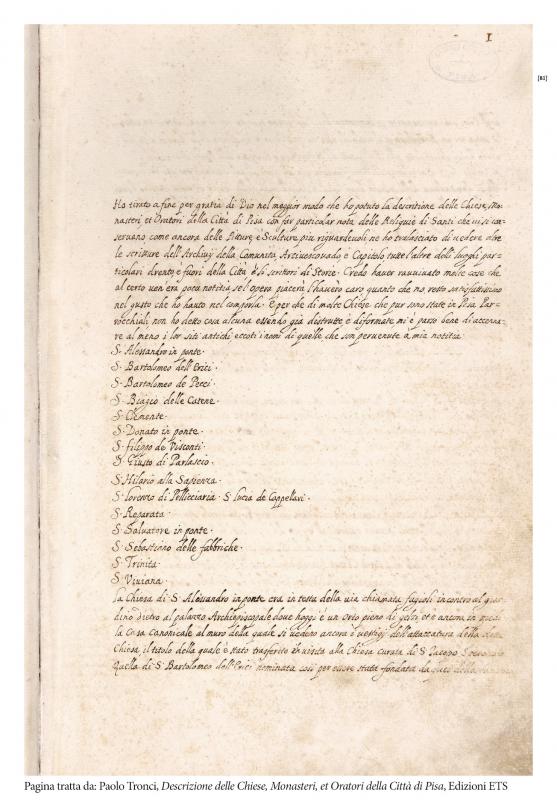 1
[81]
Ho tirato a fine per gratia di Dio nel meglior modo che ho potuto la descritione delle Chiese, Mo-
nasteri et Oratori della Città di Pisa con far particular nota delle Reliquie di Santi che in si con-
seruano, come ancora delle Pitture, e Sculture piu riguardeuoli ne ho tralasciato di uedere oltre
le scritture dell'Archiuij della Comunita, Arciuescouado, e Capitolo tutte l'altre delli luoghi par-
ticolari drento, e fuori della Città e li scrittori di Storie. Credo hauer rauuiuato molte cose che
al certo uen'era poca notitia, se l'opera piacerà l'hauerò caro quanto che no resto satisfattissimo
nel gusto che ho hauto nel comporla. E per che di molte Chiese che pur sono state in Pisa Par-
rocchiali non ho detto cosa alcuna essendo già distrutte, e diformate mi è parso bene di accenna-
re al meno i lor siti antichi eccoti i nomi di quelle che son peruenute a mia notitia.
S. Alessandro in ponte.
S. Bartolomeo dell'Erici.
S. Bartolomeo de Pecci.
S. Biagio delle Catene.
S. Clemente.
S. Donato in ponte.
S. filippo de Visconti.
S. Giusto di Parlascio.
S. Hilario alla Sapienza.
S. Lorenzo di Pellicciaria. S. Lucia de Cappellari.
S. Reparata.
S. Saluatore in ponte.
S. Sebastiano delle fabbriche.
S. Trinita.
S. Viuiana.
la Chiesa di S. Alessandro in ponte era in testa della uia chiamata fagioli incontro al giar-
dino dietro al palazzo Archiepiscopale doue hoggi è un Orto pieno di gelsi, et è ancora in piedi
la Casa Canonicale al muro della quale si uedono ancora i uestigij dell'attaccatura della
Chiesa, il titolo della quale è stato trasferito in uisita alla Chiesa curata di S. Jacopo
Quella di S. Bartolomeo dell'Erici nominata cosi per essere stata fondata da
Pagina tratta da: Paolo Tronci, Descrizione delle Chiese, Monasteri, et Oratori della Città di Pisa, Edizioni ETS